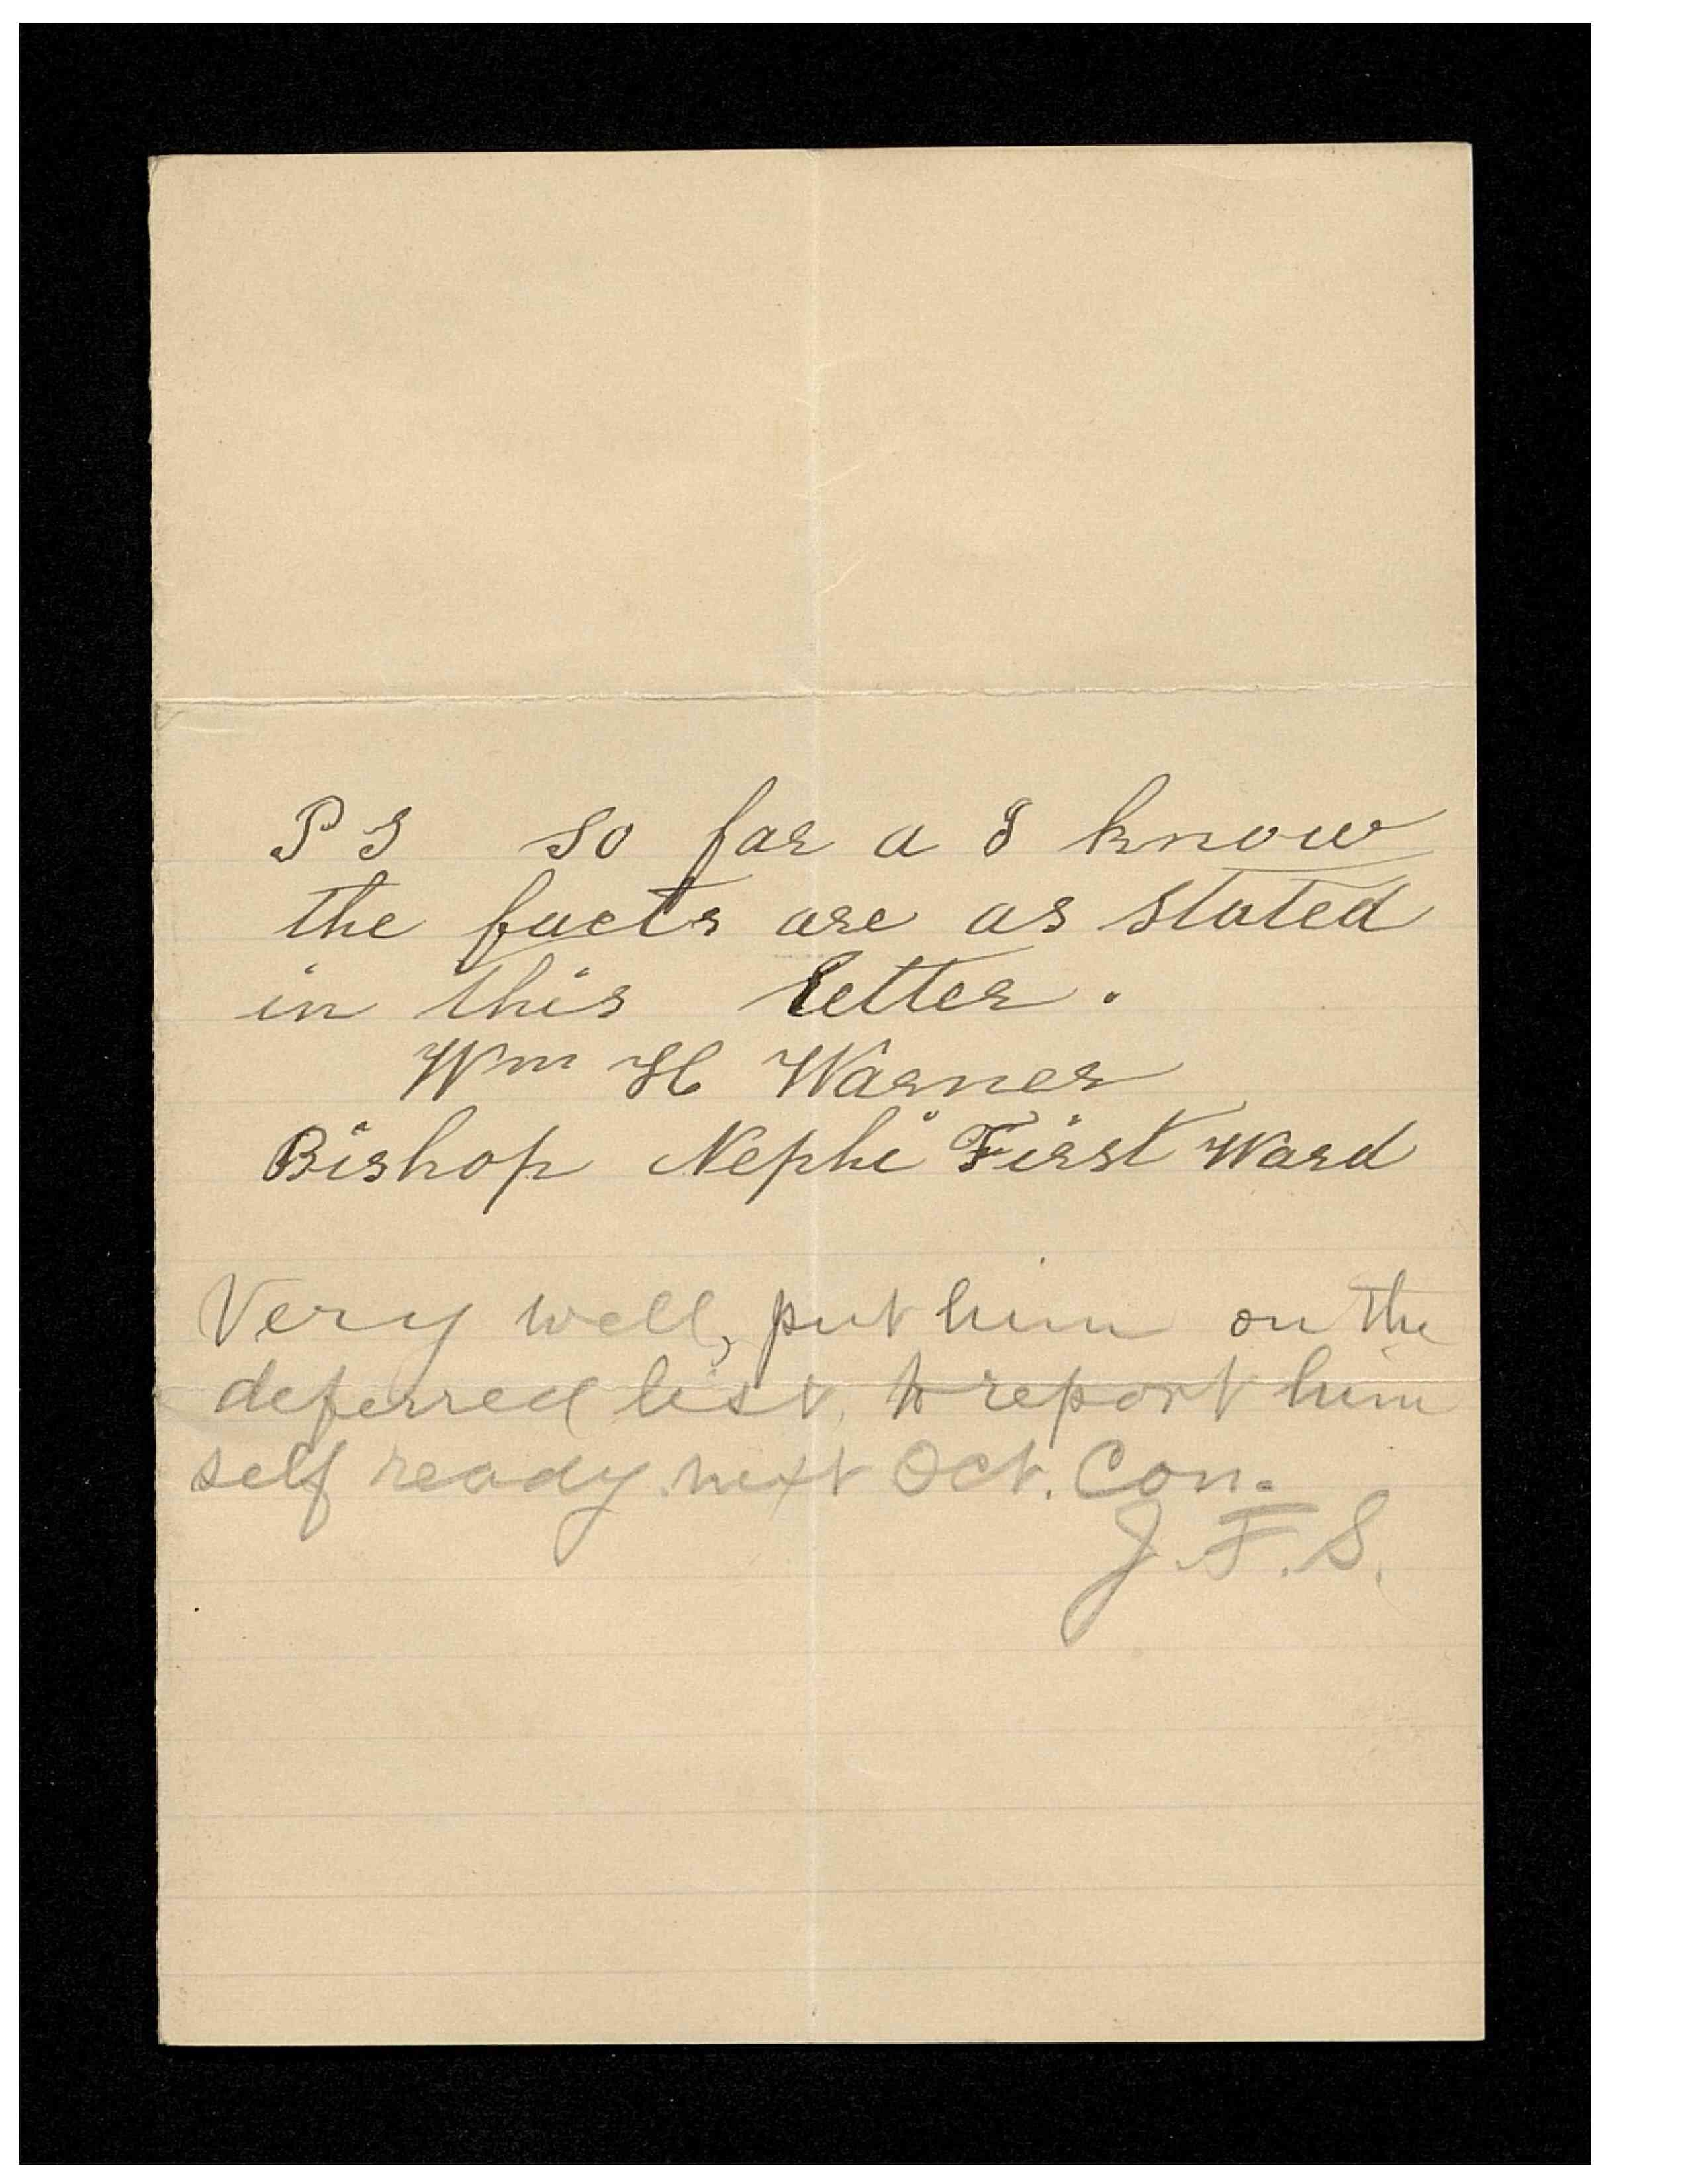 P S so far a I know
the facts are as stated
in this letter.
Wm H Warner
Bishop Nephi First Ward
Very well, put him on the
deferred list, to report him
self ready next Oct. Con.
J. F. S.